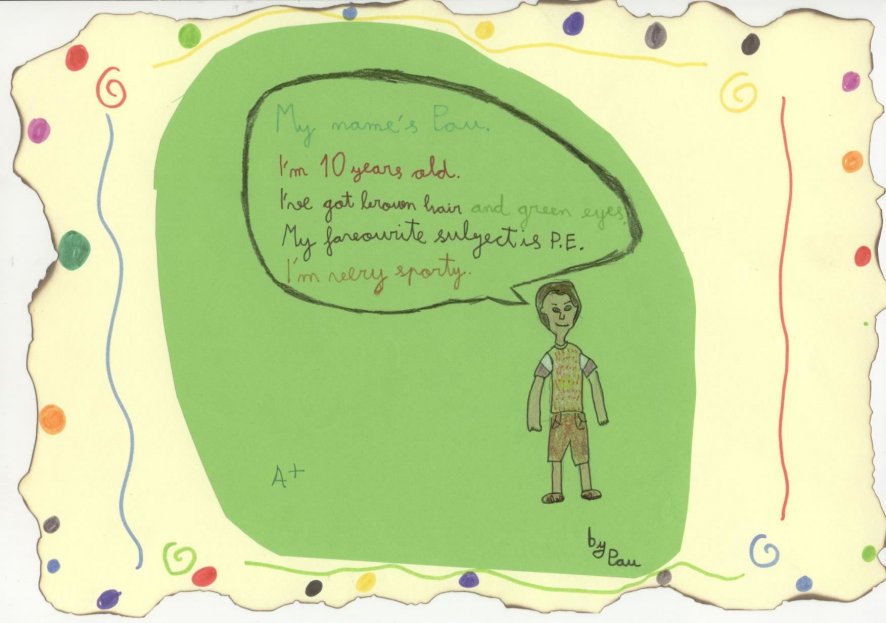 My name's Pau.
I'm 10 years old.
I've got brown hair and green eyes.
My faveourite subject is P.E.
I'm veery sporty.
A+
by
Pau